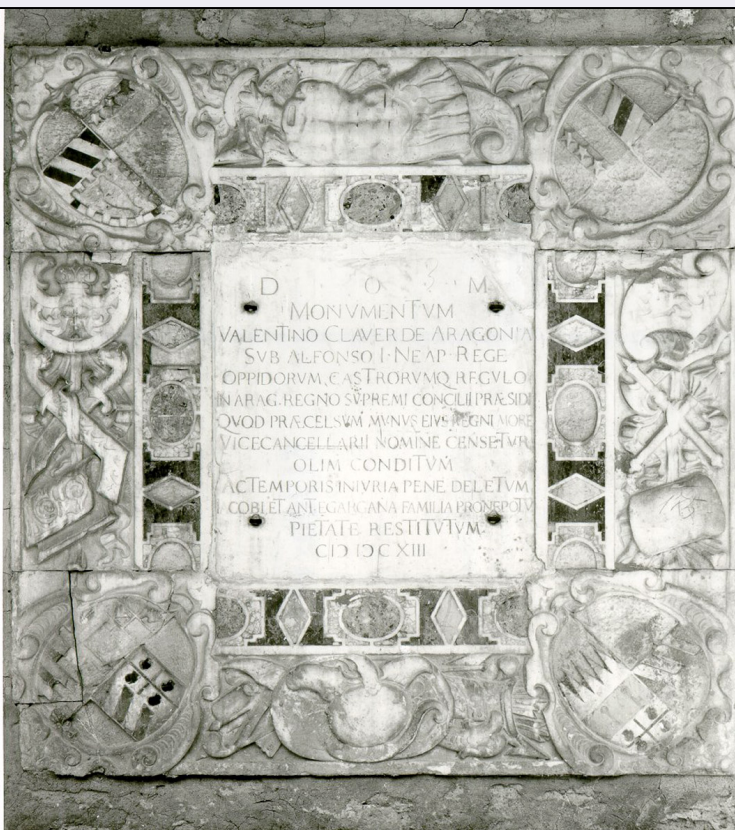 D O M
MONVMENTVM
VALENTINO CLAVER DE ARAGONIA
SVB ALFONSO I · NEAP · REGE
OPPIDORVM, CASTRORVMQ REGVLO
IN ARAG. REGNO SVPREMI CONCILII PRÆSIDI
QVOD PRÆCELSVM MVNVS EIVS REGNI MORE
VICECANCELLARII NOMINE CENSETVR
OLIM CONDITVM
AC TEMPORIS INIVRIA PENE DELETVM
ET ANT GARGANA FAMILIA PRONEPOTV
PIETATE RESTITVTVM
CIↃ IↃC XIII